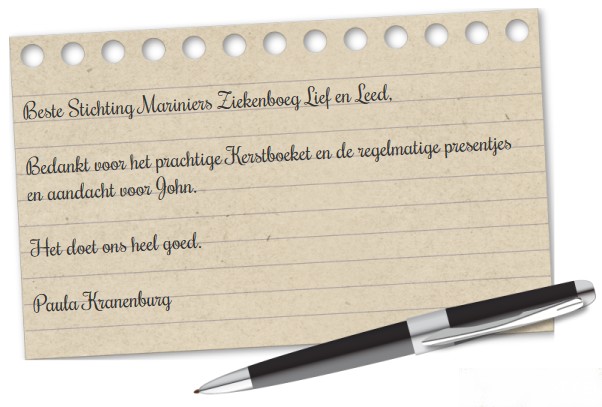 Beste Stichting Mariniers Ziekenboeg Lief en Leed,
Bedankt voor het prachtige Kerstboeket en de regelmatige presentjes
en aandacht voor John.
Het doet ons heel goed.
Paula Kranenburg